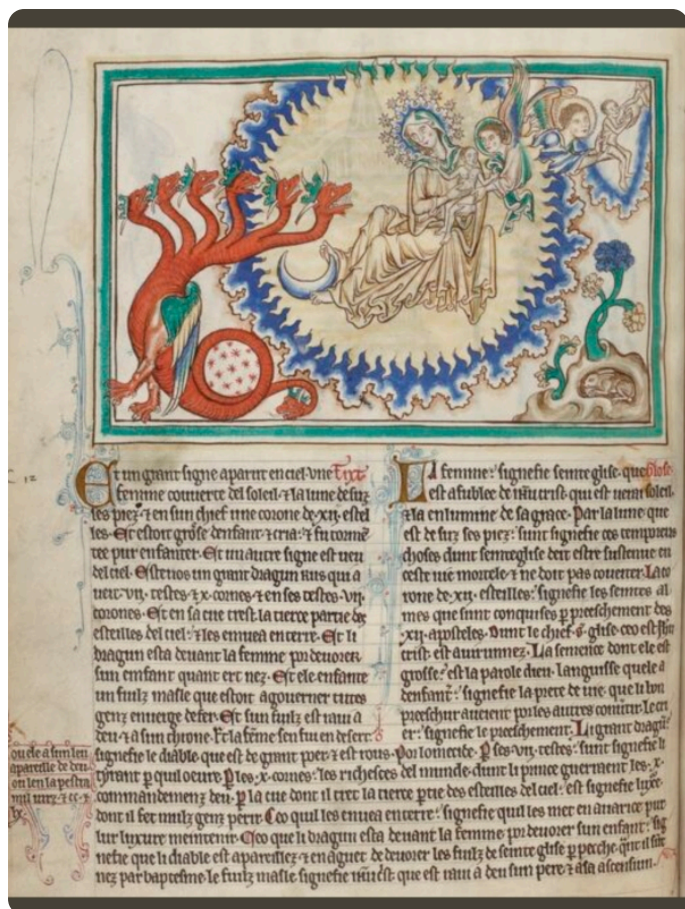 12
Et un grant signe aparut en ciel. vne Tixt
femme couuerte del soleil. ⁊ la lune desuz
les piez. ⁊ en sun chief une corone de .xii. estel
les. Et estoit grosse denfant ⁊ cria: ⁊ fu torme
tee pur enfanter. Et un autre signe est ueu
del ciel. Esteuos un grant dragun rus qui a
ueit .vii. testes ⁊ x. cornes ⁊ en ses testes .vii.
corones. Et sa cue trest la tierce partie des
esteilles del ciel: ⁊ les enuea en terre. Et li
dragun esta deuant la femme por deuorer
sun emfant quant ert nez. Et ele enfanta
un fiulz masle que estoit a gouerner tutes
genz en uerge de fer. Et sun fiulz est raui a
deu ⁊ a sun throne. Et la feme sen fui en desert
La femme: signefie seinte glise. que Glose
est afublee de nostre crist. qui est uerai soleil.
⁊ la enlumine de sa grace. Par la lune que
est desuz ses piez: sunt signefie ces temporeus
choses dunt seinte glise deit estre sustenue en
ceste uie mortele ⁊ ne doit pas coueiter. La co
rone de .xii. esteilles: signefie les seintes al
mes que sunt conquises p preeschement des
.xii. aposteles. Dunt le chief
crist. est auirunnez. La semence dont ele est
grosse: est la parole dieu. languisse quele a
denfant: signefie la
preeschur
er: signefie le preeschement. Li grant dragun
signefie le diable. que est de grant poer ⁊ est rous. Por lomecide. P ses .vii. testes: sunt signefie li
tyrant p quil oeure. P les .x. cornes: les richesces del munde. dunt li prince guerreient les .x.
commandemenz deu. P la cue dont il tret la tierce ptie des esteilles del ciel: est signefie luxure.
dont il fet mulz genz perir. Ceo quil les enuea en terre: signefie quil les met en auarice pur
lur luxure meintenir. Ceo que li dragun esta deuant la femme por deuorer sun enfant: sig
nefie que li diable est apareillez ⁊ en aguet de deuorer les fiulz de seinte glise p pecche. que il fet
nez par baptesme. le fiulz masle signefie que est raui a deu sun pere ⁊ a sa ascensiun.
ou ele a sun leu
apareille de deu
on len la pestra
mil iurz ⁊ cc. ⁊
lx.